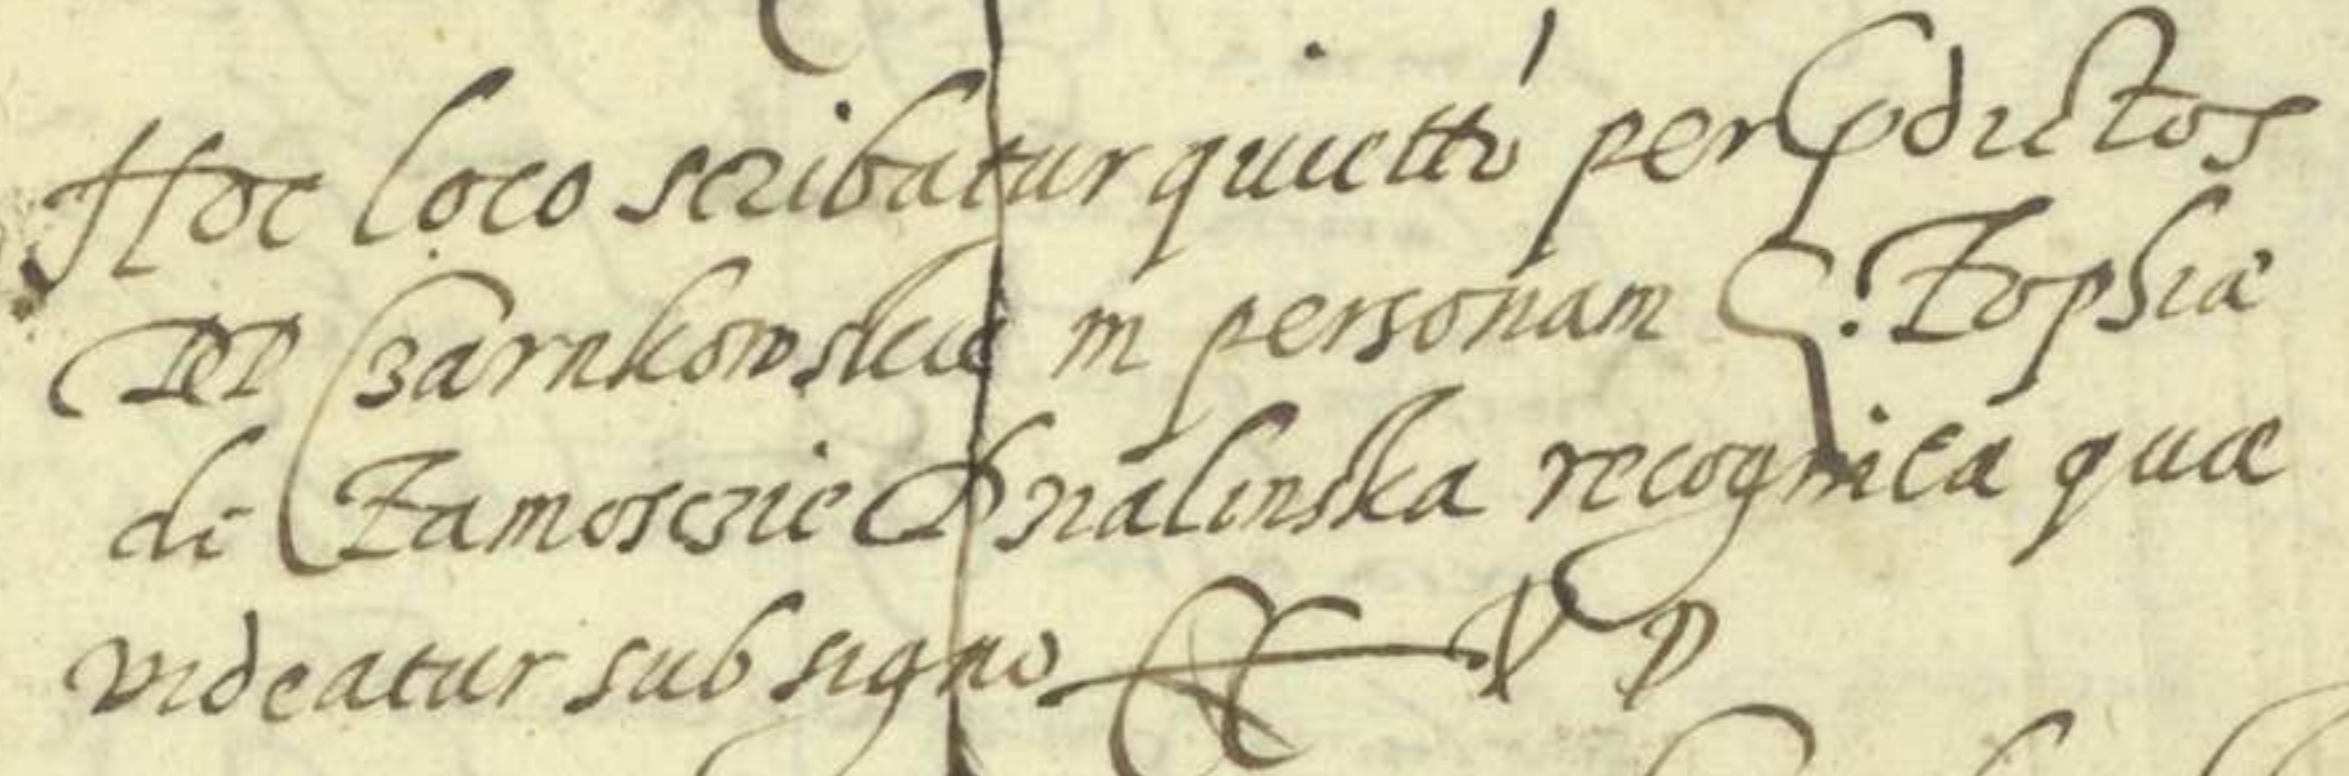 Hoc loco scribatur quiettō per p̄dictos
DD Czarnkowskie in personam G. Zophiæ
de Zamosczie Dzialinska recognita quæ
videatur sub signo